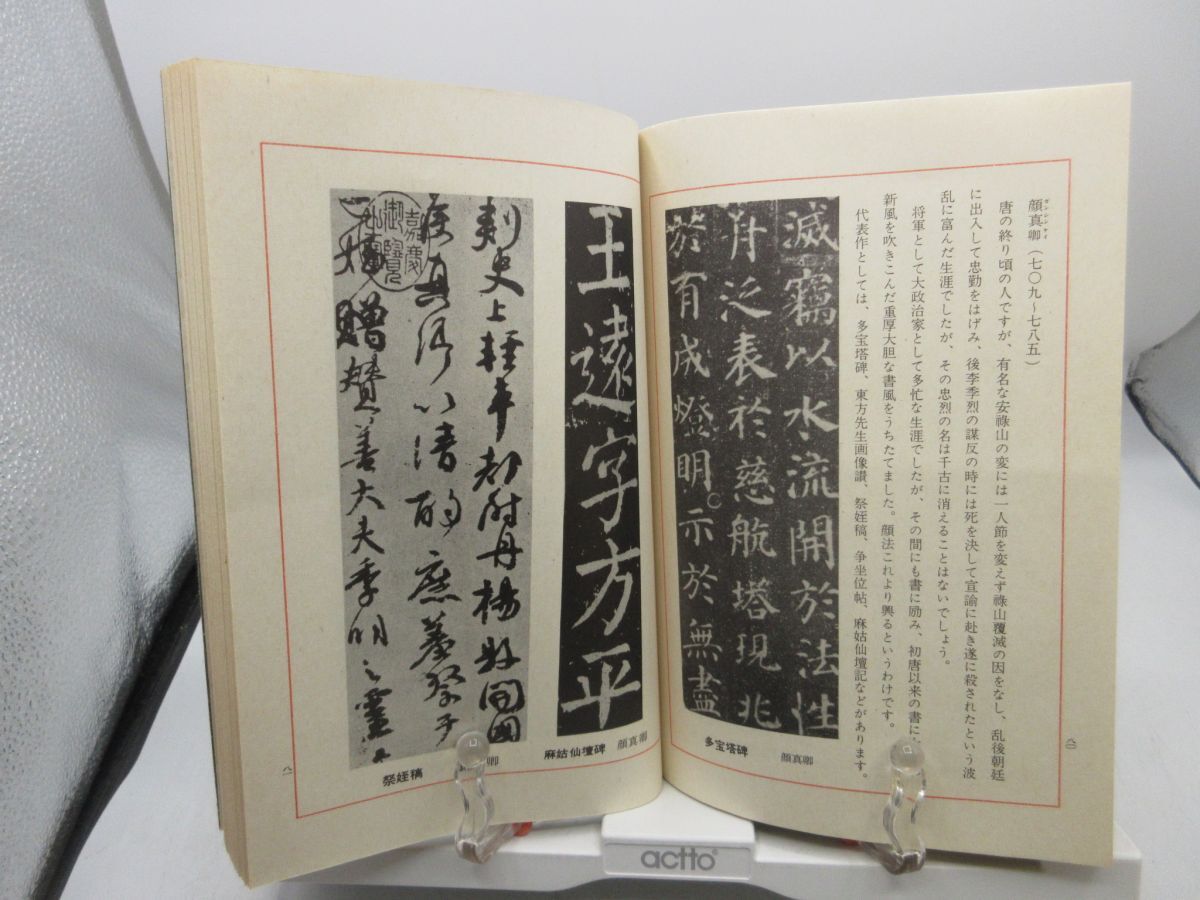 顔真卿（七〇九～七八五）
唐の終り頃の人ですが、有名な安祿山の変には一人節を変えず祿山覆滅の因をなし、乱後朝廷
に出入して忠勤をはげみ、後李季烈の謀反の時には死を決して宣諭に赴き遂に殺されたという波
乱に富んだ生涯でしたが、その忠烈の名は千古に消えることはないでしょう。
将軍として大政治家として多忙な生涯でしたが、その間にも書に励み、初唐以来の書に
新風を吹きこんだ重厚大胆な書風をうちたてました。顔法これより興るというわけです。
代表作としては、多宝塔碑、東方先生画像讃、祭姪稿、争坐位帖、麻姑仙壇記などがあります。
滅竊以水流開於法性
舟泛表於慈航塔現兆
於有成燈明示於無盡
多宝塔碑 顔真卿
王遠字方平
麻姑仙壇碑 顔真卿
刺史上輕車都尉丹楊縣開國
侯真卿以清酌庶羞祭于
姪贈贊善大夫季明之靈
嘉慶
御覧
祭姪稿 卿
actto